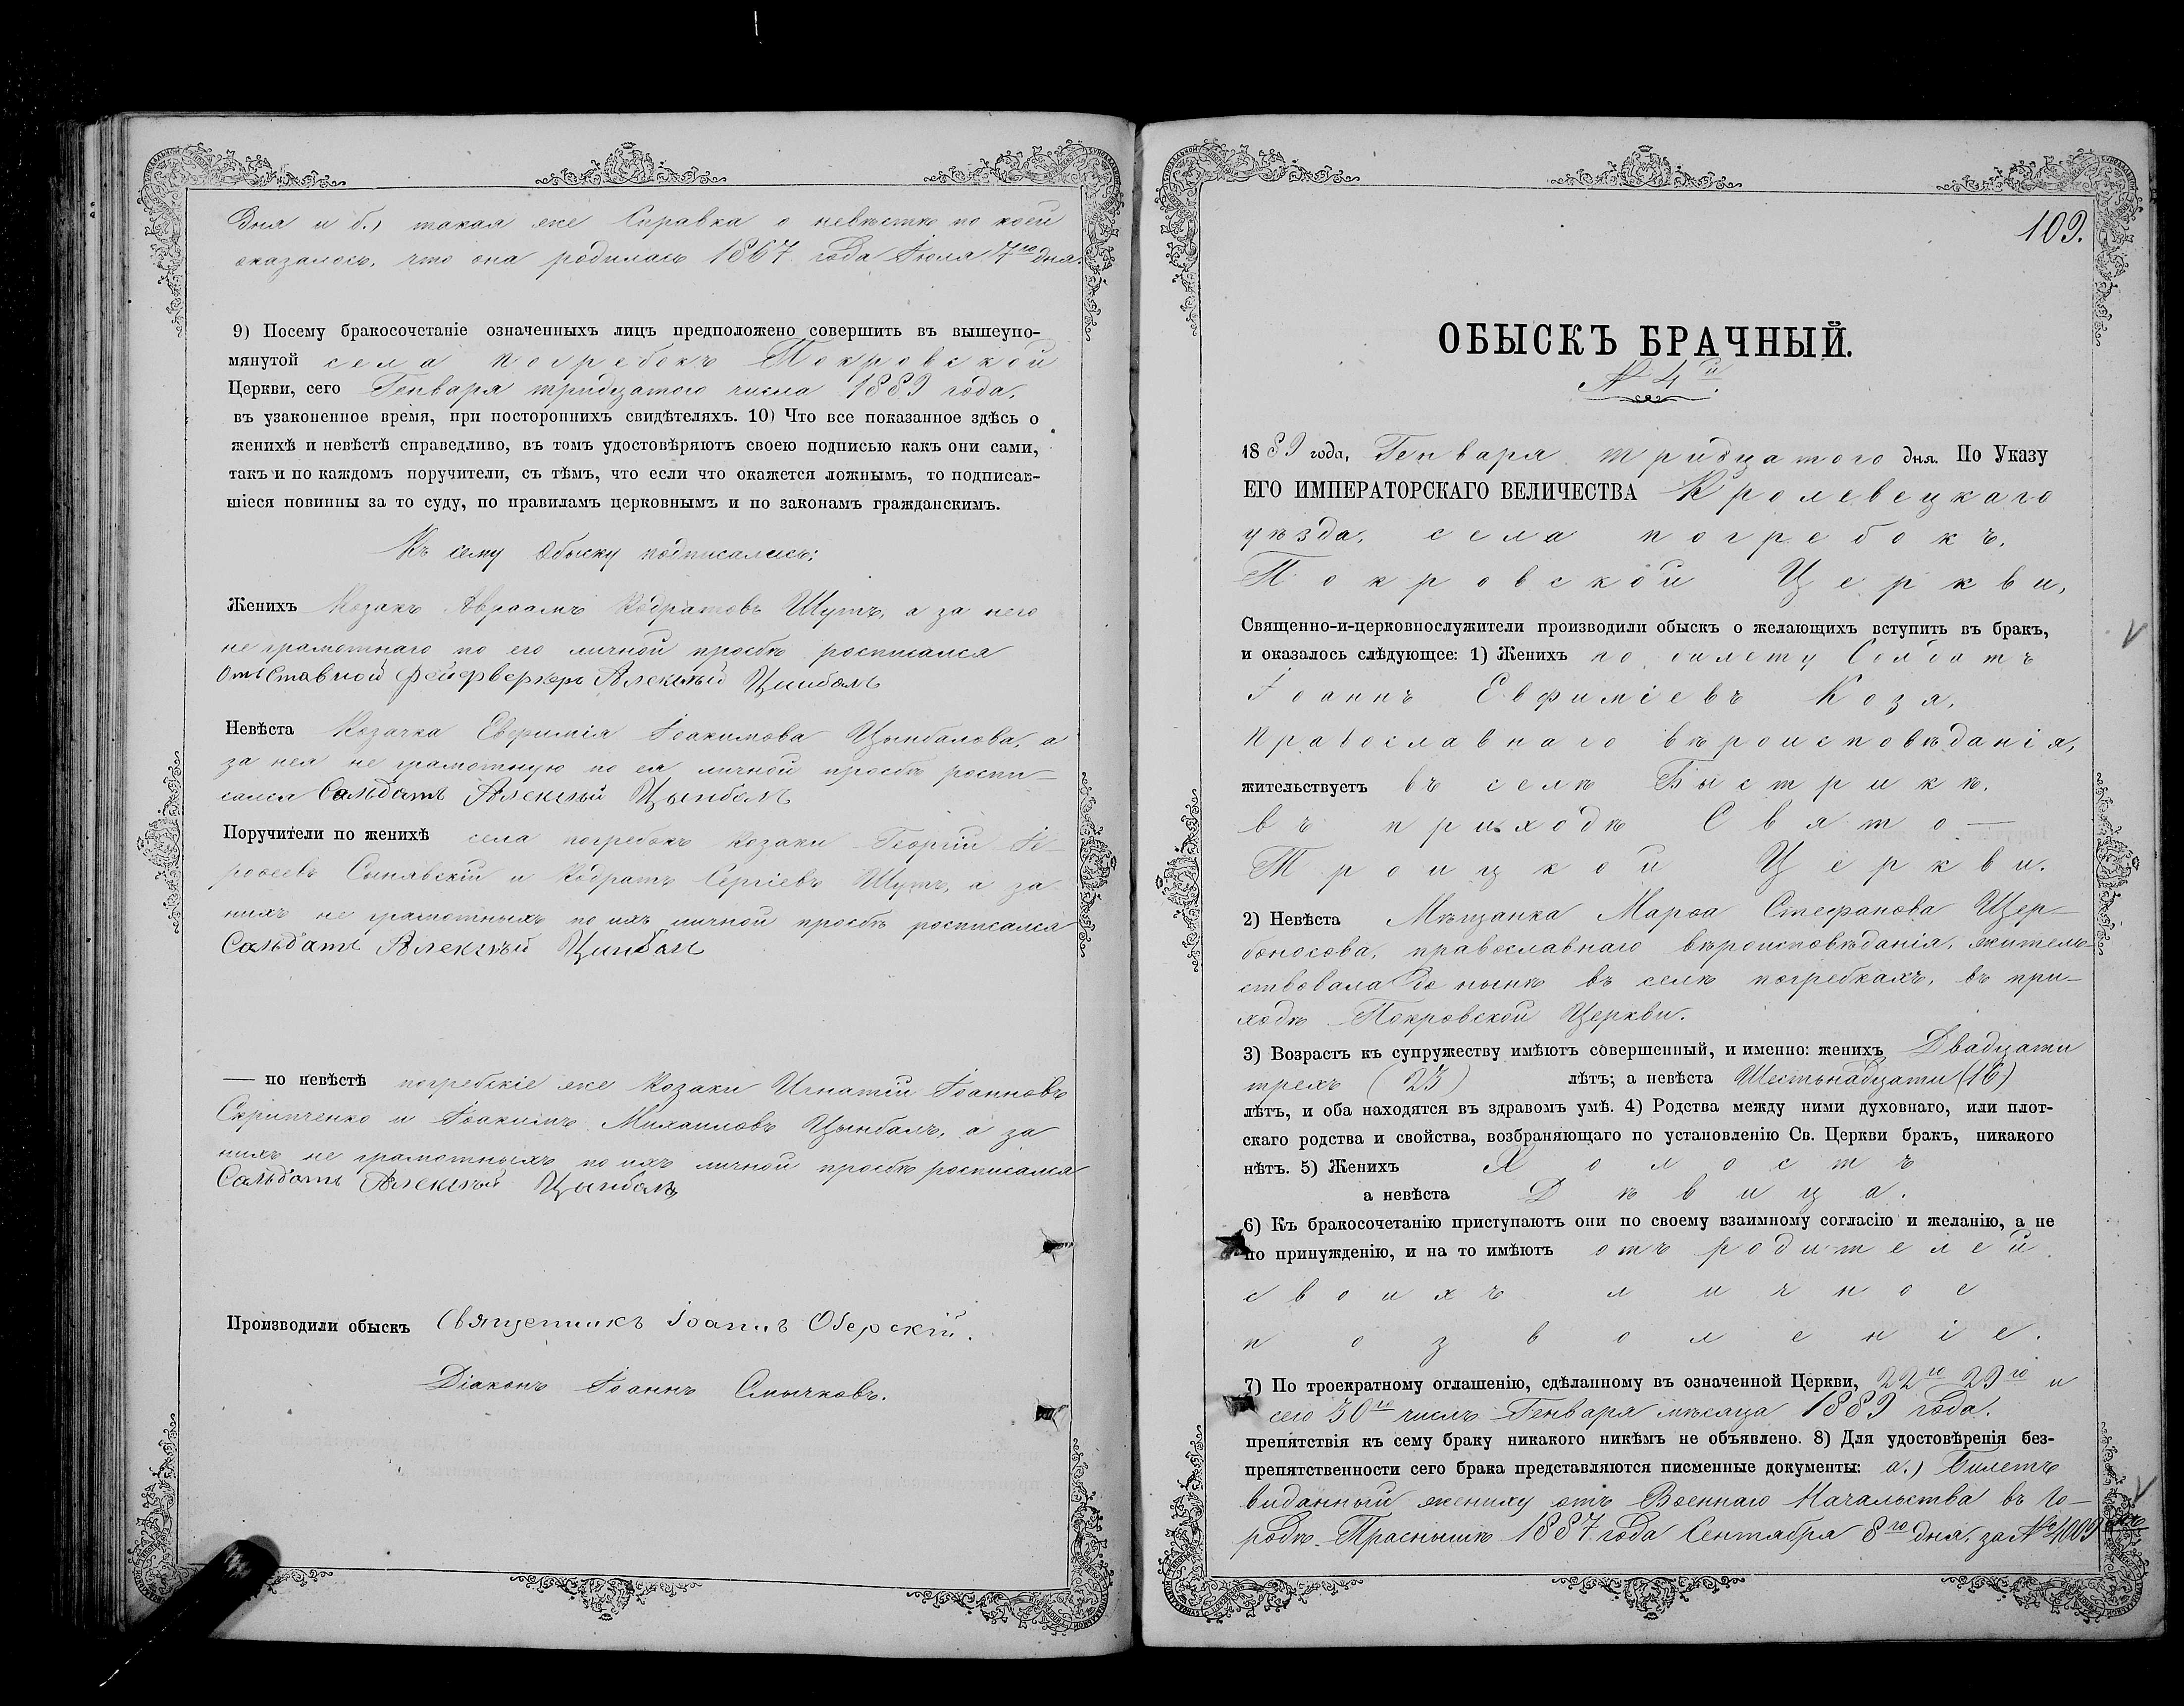 Дня и б.) такая же Справка о невѣстѣ по коей
оказалось, что она родилась 1867 года Іюля 7го дня.
9) Посему бракосочетаніе означенныхъ лицъ предположено совершить въ вышеупо-
мянутой села погребокъ Покровской
Церкви, сего Генваря тридцатого числа 1889 года,
въ узаконенное время, при постороннихъ свидѣтеляхъ. 10) Что все показанное здѣсь о
женихѣ и невѣстѣ справедливо, въ томъ удостовѣряютъ своею подписью какъ они сами,
такъ и по каждомъ поручители, съ тѣмъ, что если что окажется ложнымъ, то подписав-
шіеся повинны за то суду, по правиламъ церковнымъ и по законамъ гражданскимъ.
Къ сему Обыску подписались:
Женихъ Козакъ Авраамъ Кодратовъ Шутъ, а за него
не грамотнаго по его личной просьбѣ росписался
отъставной фейфверкеръ Алексѣй Цинбалъ
Невѣста Козачка Евфимія Іоакимова Цынбалова, а
за нея не грамотную по ея личной просьбѣ роспи-
сался Сальдатъ Алексѣй Цынбалъ
Поручители по женихѣ села погребокъ Козаки Георгій Іе-
рофеевъ Сынявскій и Кодратъ Сергіевъ Шутъ, а за
нихъ не грамотныхъ по ихъ личной просьбѣ росписался
Сальдатъ Алексѣй Цинбал
— по невѣстѣ погребскіе же Козаки Игнатій Іоанновъ
Скрипченко и Іоакимъ Михаиловъ Цынбалъ, а за
нихъ не грамотныхъ по ихъ личной просьбѣ росписался
Сальдатъ Алексѣй Цинбалъ
Производили обыскъ Священникъ Іоаннъ Озерскій.
Діаконъ Іоаннъ Смычковъ.
109.
ОБЫСКЪ БРАЧНЫЙ.
№ 4й.
1889 года, Генваря тридцатого дня. По Указу
ЕГО ИМПЕРАТОРСКАГО ВЕЛИЧЕСТВА Кролевецкаго
уѣзда, села погребокъ,
Покровской Церкви,
Священно-и-церковнослужители производили обыскъ о желающихъ вступить въ бракъ,
и оказалось слѣдующее: 1) Женихъ по билету Солдатъ
Іоаннъ Евфиміевъ Коза,
православнаго вѣроисповѣданія,
жительствуетъ въ селѣ Быстрикѣ,
въ приходѣ Свято-
Троицкой Церкви.
2) Невѣста Мѣщанка Марѳа Стефанова Щер-
боносова, православнаго вѣроисповѣданія, житель-
ствовала до нынѣ въ селѣ погребкахъ, въ при-
ходѣ Покровской Церкви.
3) Возрастъ къ супружеству имѣютъ совершенный, и именно: женихъ Двадцати
трехъ (23) лѣтъ; а невѣста Шестьнадцати (16)
лѣтъ, и оба находятся въ здравомъ умѣ. 4) Родства между ними духовнаго, или плот-
скаго родства и свойства, возбраняющаго по установленію Св. Церкви бракъ, никакого
нѣтъ. 5) Женихъ Холостъ
а невѣста Дѣвица.
6) Къ бракосочетанію приступаютъ они по своему взаимному согласію и желанію, а не
по принужденію, и на то имѣютъ отъ родителей
своихъ личное
позволеніе.
7) По троекратному оглашенію, сдѣланному въ означенной Церкви, 22го 29го и
сего 30го числъ Генваря мѣсяца 1889 года.
препятствія къ сему браку никакого никѣмъ не объявлено. 8) Для удостовѣренія без-
препятственности сего брака представляются писменные документы: а.) Билетъ
виданный жениху отъ Военнаго Начальства въ го-
родѣ Праснышѣ 1887 года Сентября 8го дня, за № 4009